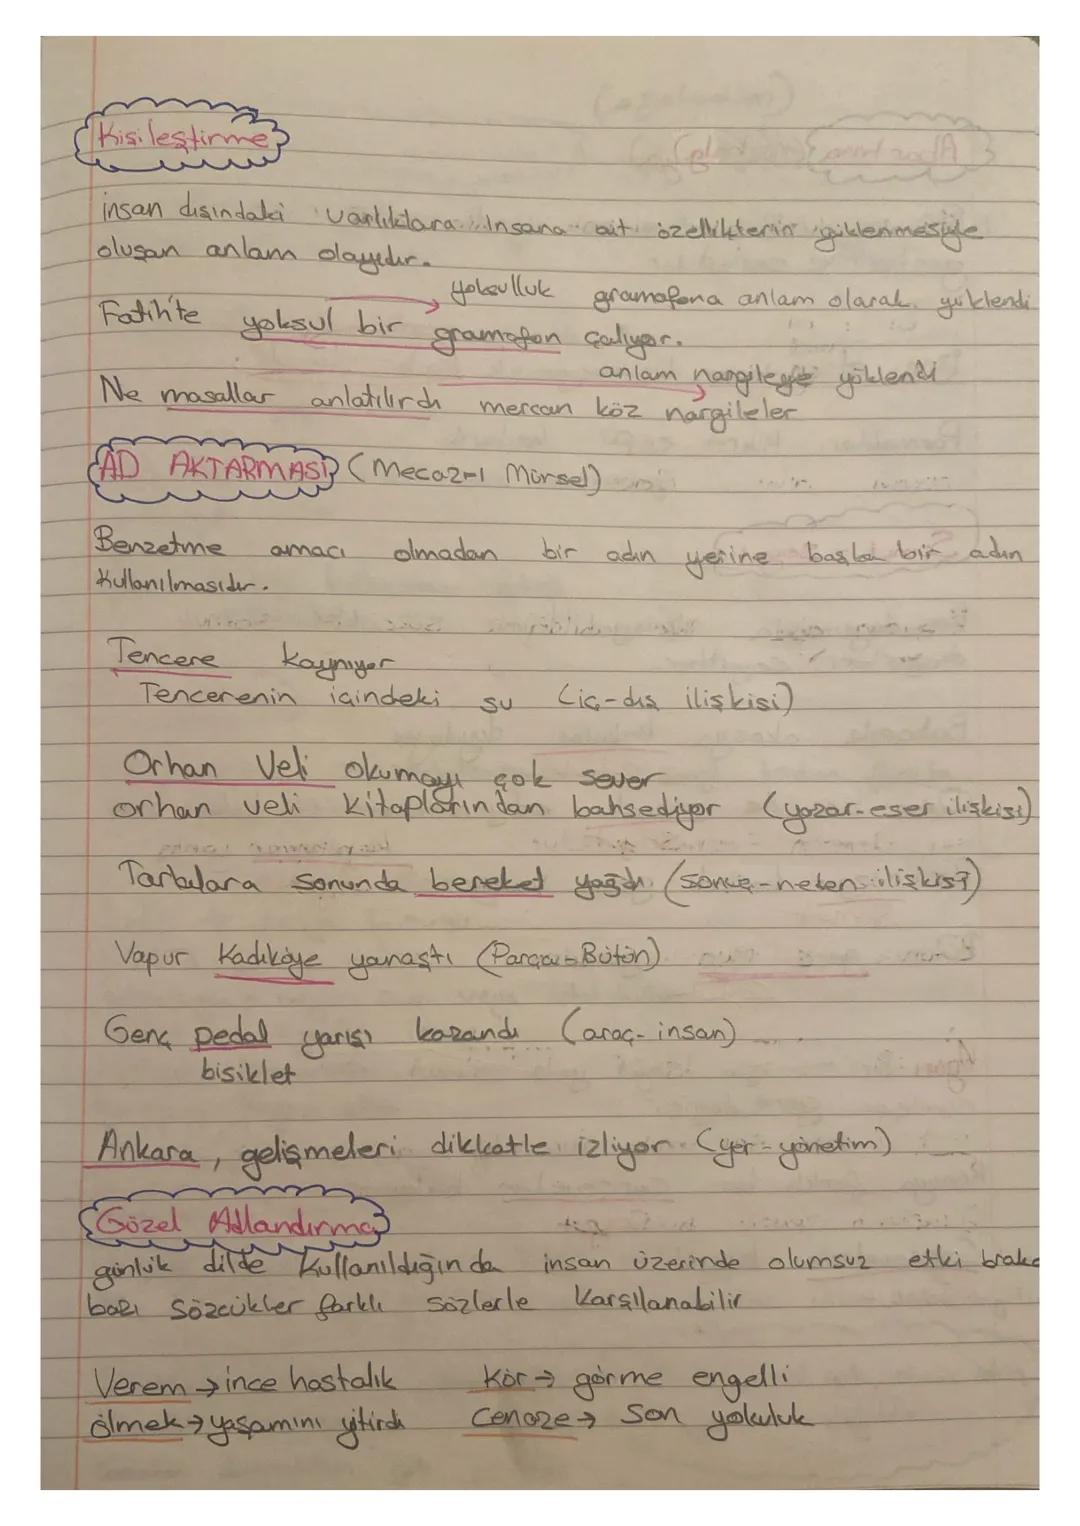 Kişileştirme
insan dışındaki varlıklara insana ait özelliklerin yüklenmesiyle
oluşan anlam olayıdır.
yoksulluk gramofona anlam olarak yüklendi
Fatih'te yoksul bir gramofon çalıyor.
anlam nargileye yüklendi
Ne masallar anlatılırdı mercan köz nargileler
AD AKTARMASI (Mecaz-ı Mürsel)
Benzetme amacı olmadan bir adın yerine başka bir adın
Kullanılmasıdır.
Tencere kaynıyor
Tencerenin içindeki su (iç-dış ilişkisi)
Orhan Veli okumayı çok sever
orhan veli kitaplarından bahsediyor (yazar-eser ilişkisi)
Tarlalara sonunda bereket yağdı (sonuç-neden ilişkisi)
Vapur Kadıköye yanaştı (Parça-Bütün)
Genç pedal yarışı kazandı (araç-insan)
bisiklet
Ankara, gelişmeleri dikkatle izliyor (yer-yönetim)
Güzel Adlandırma
günlük dilde kullanıldığında insan üzerinde olumsuz etki
bazı sözcükler farklı sözlerle karşılanabilir
Verem → ince hastalık Kör → görme engelli
ölmek → yaşamını yitirdi Cenaze → Son yolculuk